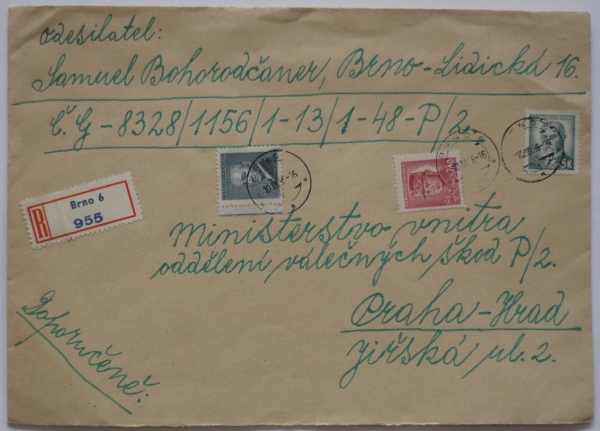 odesílatel:
Samuel Bohorodčaner, Brno-Lidická 16.
Č.G-8328/1156/1-13/1-48-P/2.
R
Brno 6
955
Ministerstvo vnitra
oddělení válečných škod P/2.
Praha-Hrad
Jiřská ul. 2.
Doporučeně: